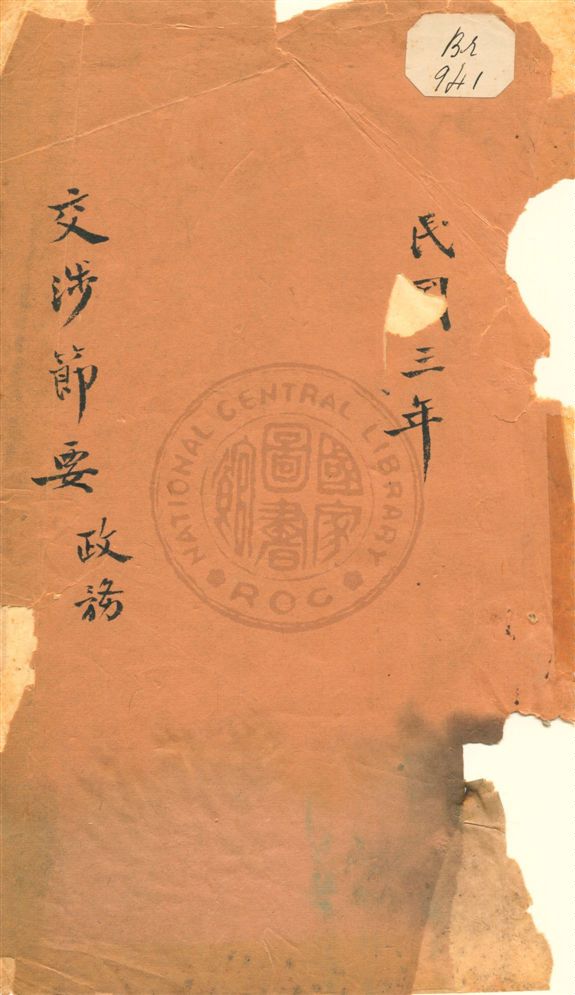 Br
941
民国三年
交涉節要
政務
NATIONAL CENTRAL LIBRARY
國家
圖書
館
ROC